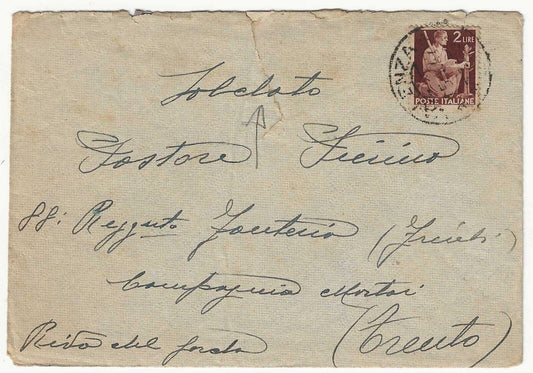 2 LIRE
POSTE ITALIANE
ENZA
Soldato
Pastore
88: Fanteria (Friuli)
Compagnia Mortai
Riva del Garda (Trento)